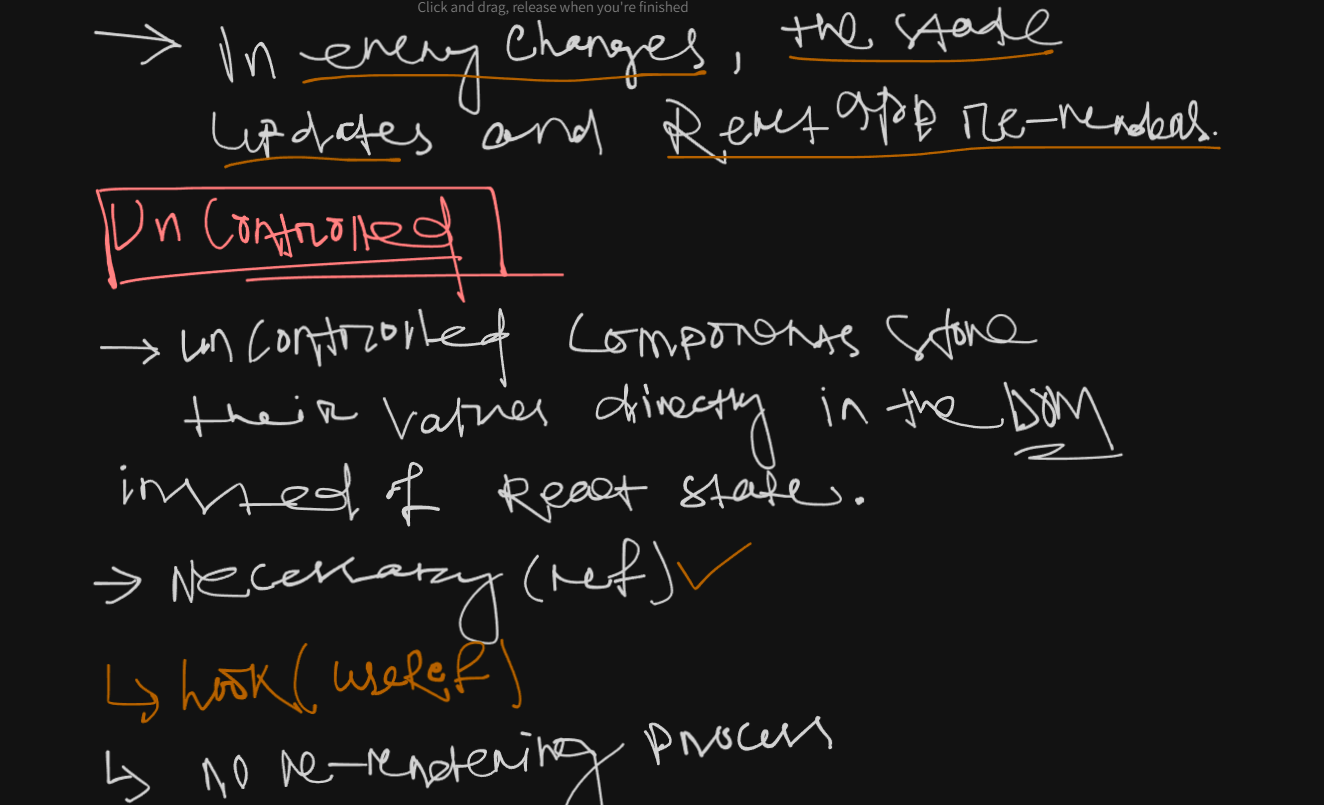 Click and drag, release when you're finished
→ In every changes, the state
updates and React app re-renders.
Un Controlled
→ un controlled components store
their values directly in the DOM
insted of React state.
→ Necessary (ref) ✓
↳ hook (useRef)
↳ no re-rendering process